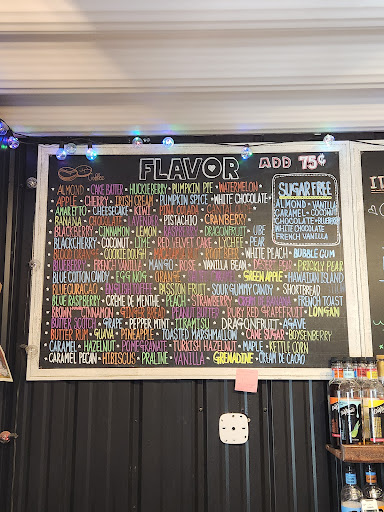 Coffee
FLAVOR
ADD 75¢
ALMOND • CAKE BATTER • HUCKLEBERRY • PUMPKIN PIE • WATERMELON •
APPLE • CHERRY • IRISH CREAM • PUMPKIN SPICE • WHITE CHOCOLATE •
AMARETTO • CHEESECAKE • KIWI •
BANANA • CHOCOLATE • PISTACHIO • CRANBERRY
BLACKBERRY • CINNAMON • LEMON • RASPBERRY • DRAGONFRUIT • UBE
BLACKCHERRY • COCONUT • LIME • RED VELVET CAKE • LYCHEE • PEAR
COOKIE DOUGH • ROOT BEER • WHITE PEACH • BUBBLE GUM
BLUEBERRY • FRENCH VANILLA • MANGO • ROSE • VANILLA BEAN • PRICKLY PEAR
BLUE COTTON CANDY • EGG NOG • ORANGE • GREEN APPLE • HAWAIIAN ISLAND
BLUE CURACAO • PASSION FRUIT • SOUR GUMMY CANDY • SHORTBREAD
BLUE RASPBERRY • CRÈME DE MENTHE • PEACH • STRAWBERRY • FRENCH TOAST
BROWN CINNAMON • GINGER BREAD • PEANUT BUTTER • RUBY RED GRAPEFRUIT • LONGAN
BUTTER SCOTCH • GRAPE • PEPPER MINT • TIRAMISU • DRAGONFRUIT • AGAVE
BUTTER RUM • GUAVA • PINEAPPLE • TOASTED MARSHMALLOW • CANE SUGAR • BOYSENBERRY
CARAMEL • HAZELNUT • POMEGRANATE • TURKISH HAZELNUT • MAPLE • KETTLE CORN
• CARAMEL PECAN • HIBISCUS • PRALINE • VANILLA • GRENADINE • CREAM DE CACAO
SUGAR FREE
ALMOND • VANILLA
CARAMEL • COCONUT
CHOCOLATE •
WHITE CHOCOLATE
FRENCH VANILLA